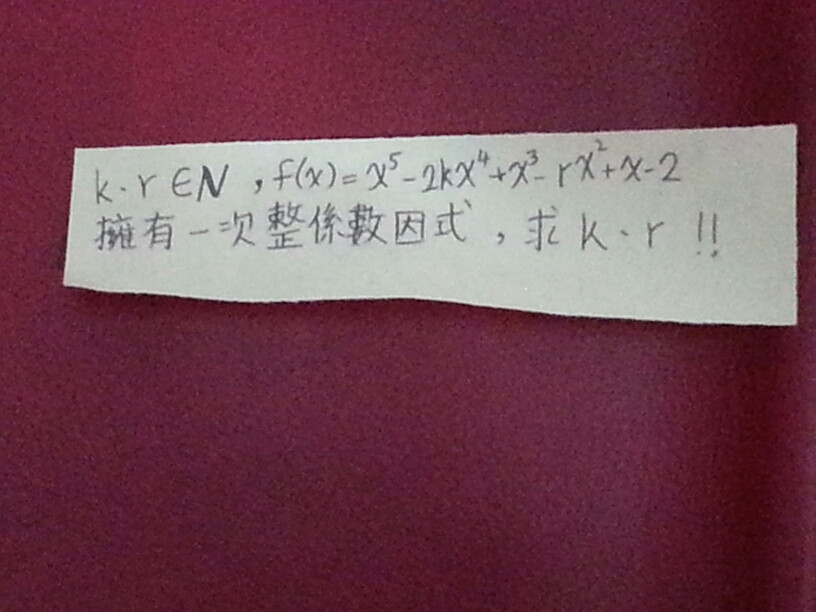 k、r∈N，f(x)=x⁵-2kx⁴+x³-rx²+x-2
擁有一次整係數因式，求k、r!!